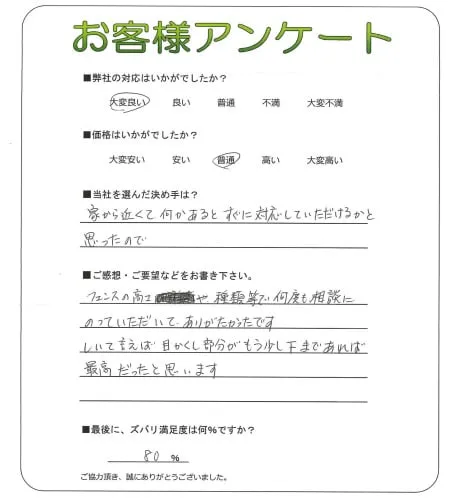 お客様アンケート
■弊社の対応はいかがでしたか？
大変良い 良い 普通 不満 大変不満
■価格はいかがでしたか？
大変安い 安い 普通 高い 大変高い
■当社を選んだ決め手は？
家から近くて何かあるとすぐに対応していただけるかと
思ったので
■ご感想・ご要望などをお書き下さい。
フェンスの高さや種類等で何度も相談に
のっていただいてありがたかったです
しいて言えば目かくし部分がもう少し下まであれば
最高だったと思います
■最後に、ズバリ満足度は何％ですか？
80 ％
ご協力頂き、誠にありがとうございました。